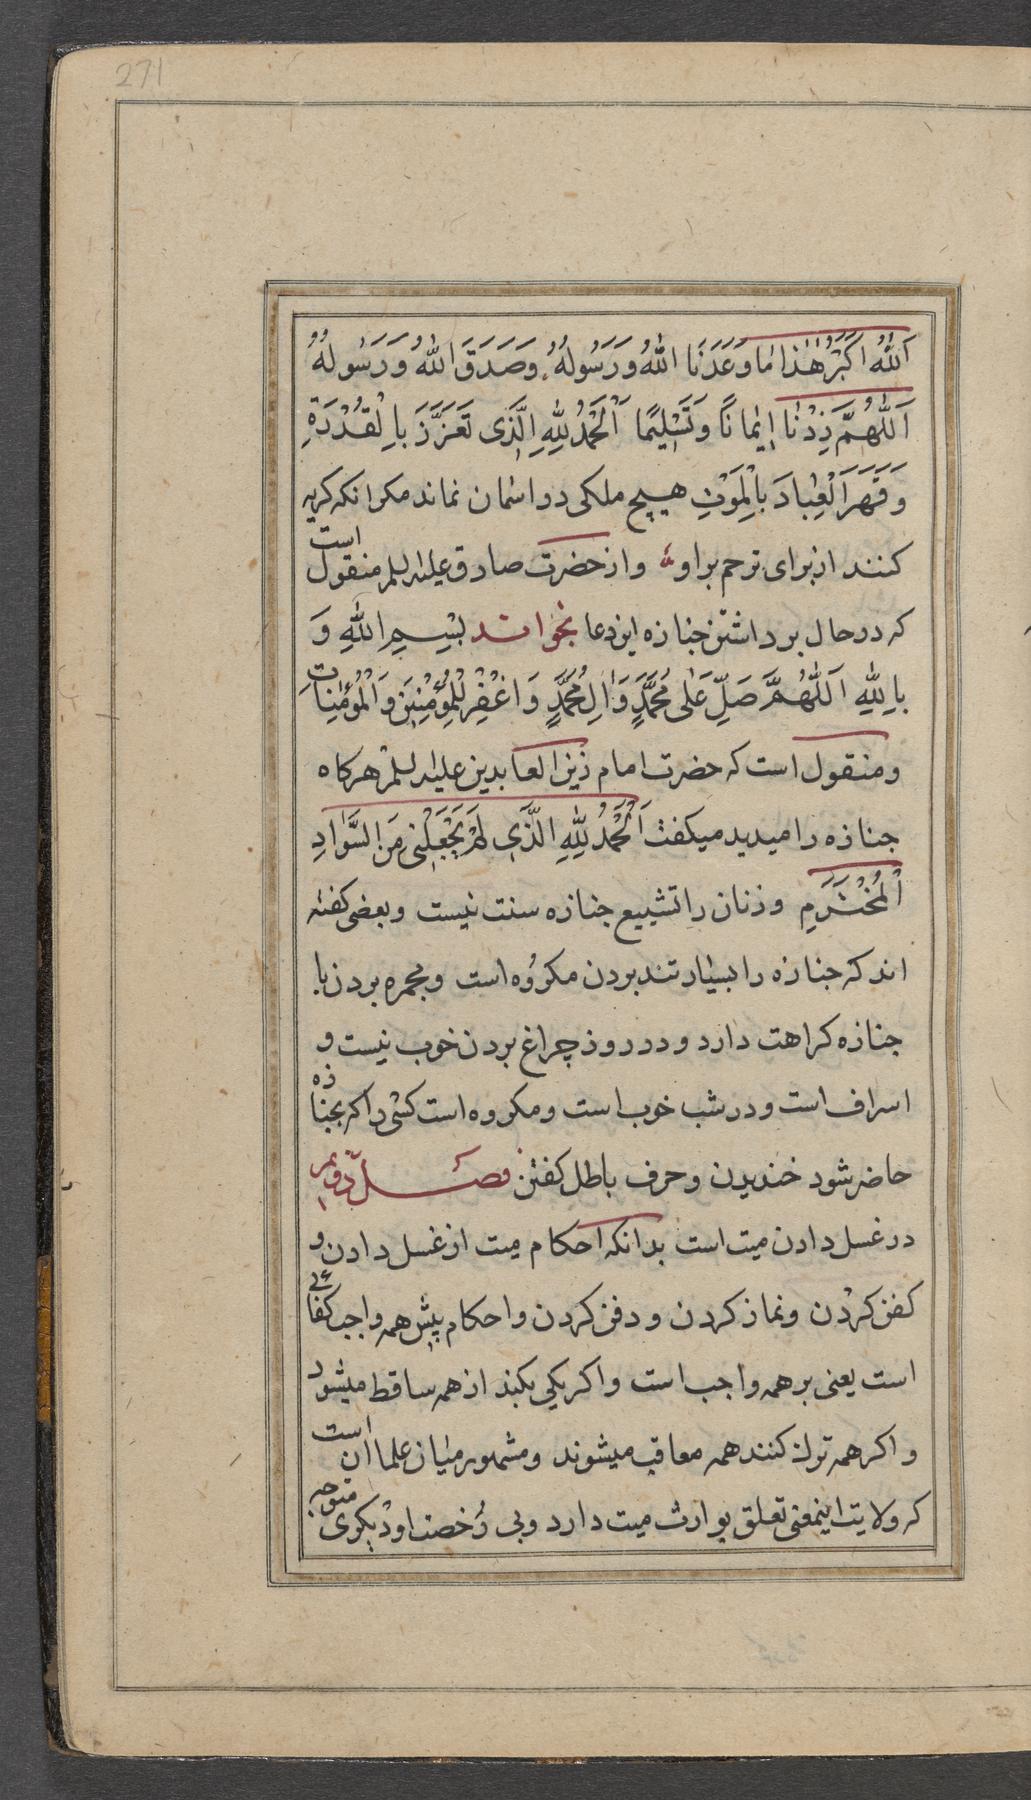 271
اَللّٰهُ اَكْبَرُ هٰذا ما وَعَدَنَا اللّٰهُ وَرَسُولُهُ وَصَدَقَ اللّٰهُ وَرَسُولُهُ
اَللّٰهُمَّ زِدْنٰا اِيمٰانًا وَتَسْلِيمًا اَلْحَمْدُ لِلّٰهِ الَّذى تَعَزَّزَ بِالْقُدْرَةِ
وَقَهَرَ الْعِبٰادَ بِالْمَوْتِ هيچ ملكى در اسمان نماند مكر انكه كريه
كنند از براى ترحم بر او و از حضرت صادق عليه السلام منقول است
كه در حال برداشتن جنازه اين دعا بخواند بِسْمِ اللّٰهِ وَ
بِاللّٰهِ اَللّٰهُمَّ صَلِّ عَلٰى مُحَمَّدٍ وَاٰلِ مُحَمَّدٍ وَاغْفِرْ لِلْمُؤْمِنِينَ وَالْمُؤْمِنٰاتِ
و منقول است كه حضرت امام زين العابدين عليه السلام هركاه
جنازه را ميديد ميكفت اَلْحَمْدُ لِلّٰهِ الَّذى لَمْ يَجْعَلْنى مِنَ السَّوٰادِ
الْمُخْتَرَمِ و زنان را تشييع جنازه سنت نيست و بعضى كفته
اند كه جنازه را بسيار تند بردن مكروه است و مجمره بردن با
جنازه كراهت دارد و در روز چراغ بردن خوب نيست و
اسراف است و در شب خوب است و مكروه است كسى را كه بجنازه
حاضر شود خنديدن و حرف باطل كفتن فصل دويم
در غسل دادن ميت است بدانكه احكام ميت از غسل دادن و
كفن كردن و نماز كردن و دفن كردن و احكام پيش همه واجب كفائى
است يعنى بر همه واجب است و اكر يكى بكند از همه ساقط ميشود
و اكر همه ترك كنند همه معاقب ميشوند و مشهور ميان علما ان است
كه ولايت اينمعنى تعلق بوارث ميت دارد و بى رخصت او ديكرى متوجه